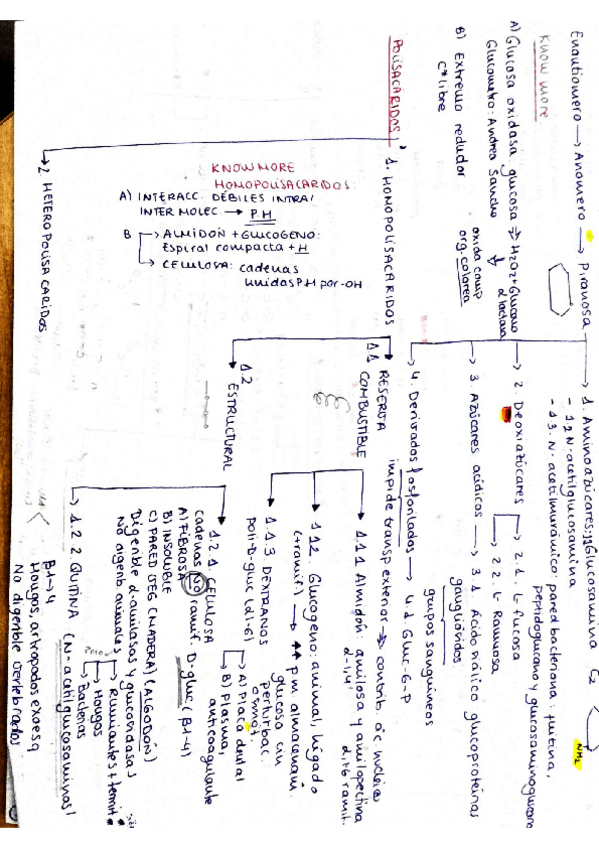 Enantiomero → Anomero → Piranosa
KNOW MORE
A) Glucosa oxidasa: glucosa ⇌ H2O2 + Glucono
δ lactona
Glucometro: Andrea Sancho
oxida comp
org. colorea
B) Extremo reductor:
C* libre
→ 1. Aminoazúcares: 1.1 Glucosamina C2
NH2
- 1.2 N-acetilglucosamina
- 1.3. N-acetilmurámico: pared bacteriana:
peptidoglucano y glucosaminoglucano
→ 2. Deoxiazúcares
→ 2.1. L-fucosa
→ 2.2. L-Ramnosa
→ 3. Azúcares acídicos → 3.1. Ácido siálico glucoproteínas
gangliósidos
grupos sanguíneos
→ 4. Derivados fosforilados → 4.1 Gluc-6-P
impide transp exterior
POLISACÁRIDOS
1. HOMOPOLISACARIDOS
KNOW MORE
HOMOPOLISACARIDOS:
A) INTERACC. DÉBILES INTRA/
INTERMOLEC. → P.H
B → ALMIDÓN + GLUCOGENO:
Espiral compacta + H
→ CELULOSA: cadenas
unidas P.H por -OH
1.1 RESERVA
COMBUSTIBLE
1.1.1 Almidón: amilosa y amilopectina
α-1,4
α 1,6 ramif.
1.1.2. Glucogeno: animal, hígado
(+ramif.) → ↑↑ pm almacenam.
glucosa sin
perturbac.
osmót
1.1.3 DEXTRANOS
poli-D-gluc (α1-6)
A) Placa dental
B) Plasma,
anticoagulante
1.2 ESTRUCTURAL
→ 1.2.1. CELULOSA
cadenas no ramif. D-gluc (β1-4)
A) FIBROSA
B) INSOLUBLE
C) PARED VEG (MADERA) (ALGODÓN)
Digerible α-amilasas y glucosidasas
No digerib animales
→ Rumiantes + termit
→ Hongos
→ Bacterias
→ 1.2.2 QUITINA (N-acetilglucosaminas)
β1→4
Hongos, artropodos exoesq
No digerible vertebrados
2. HETEROPOLISACARIDOS